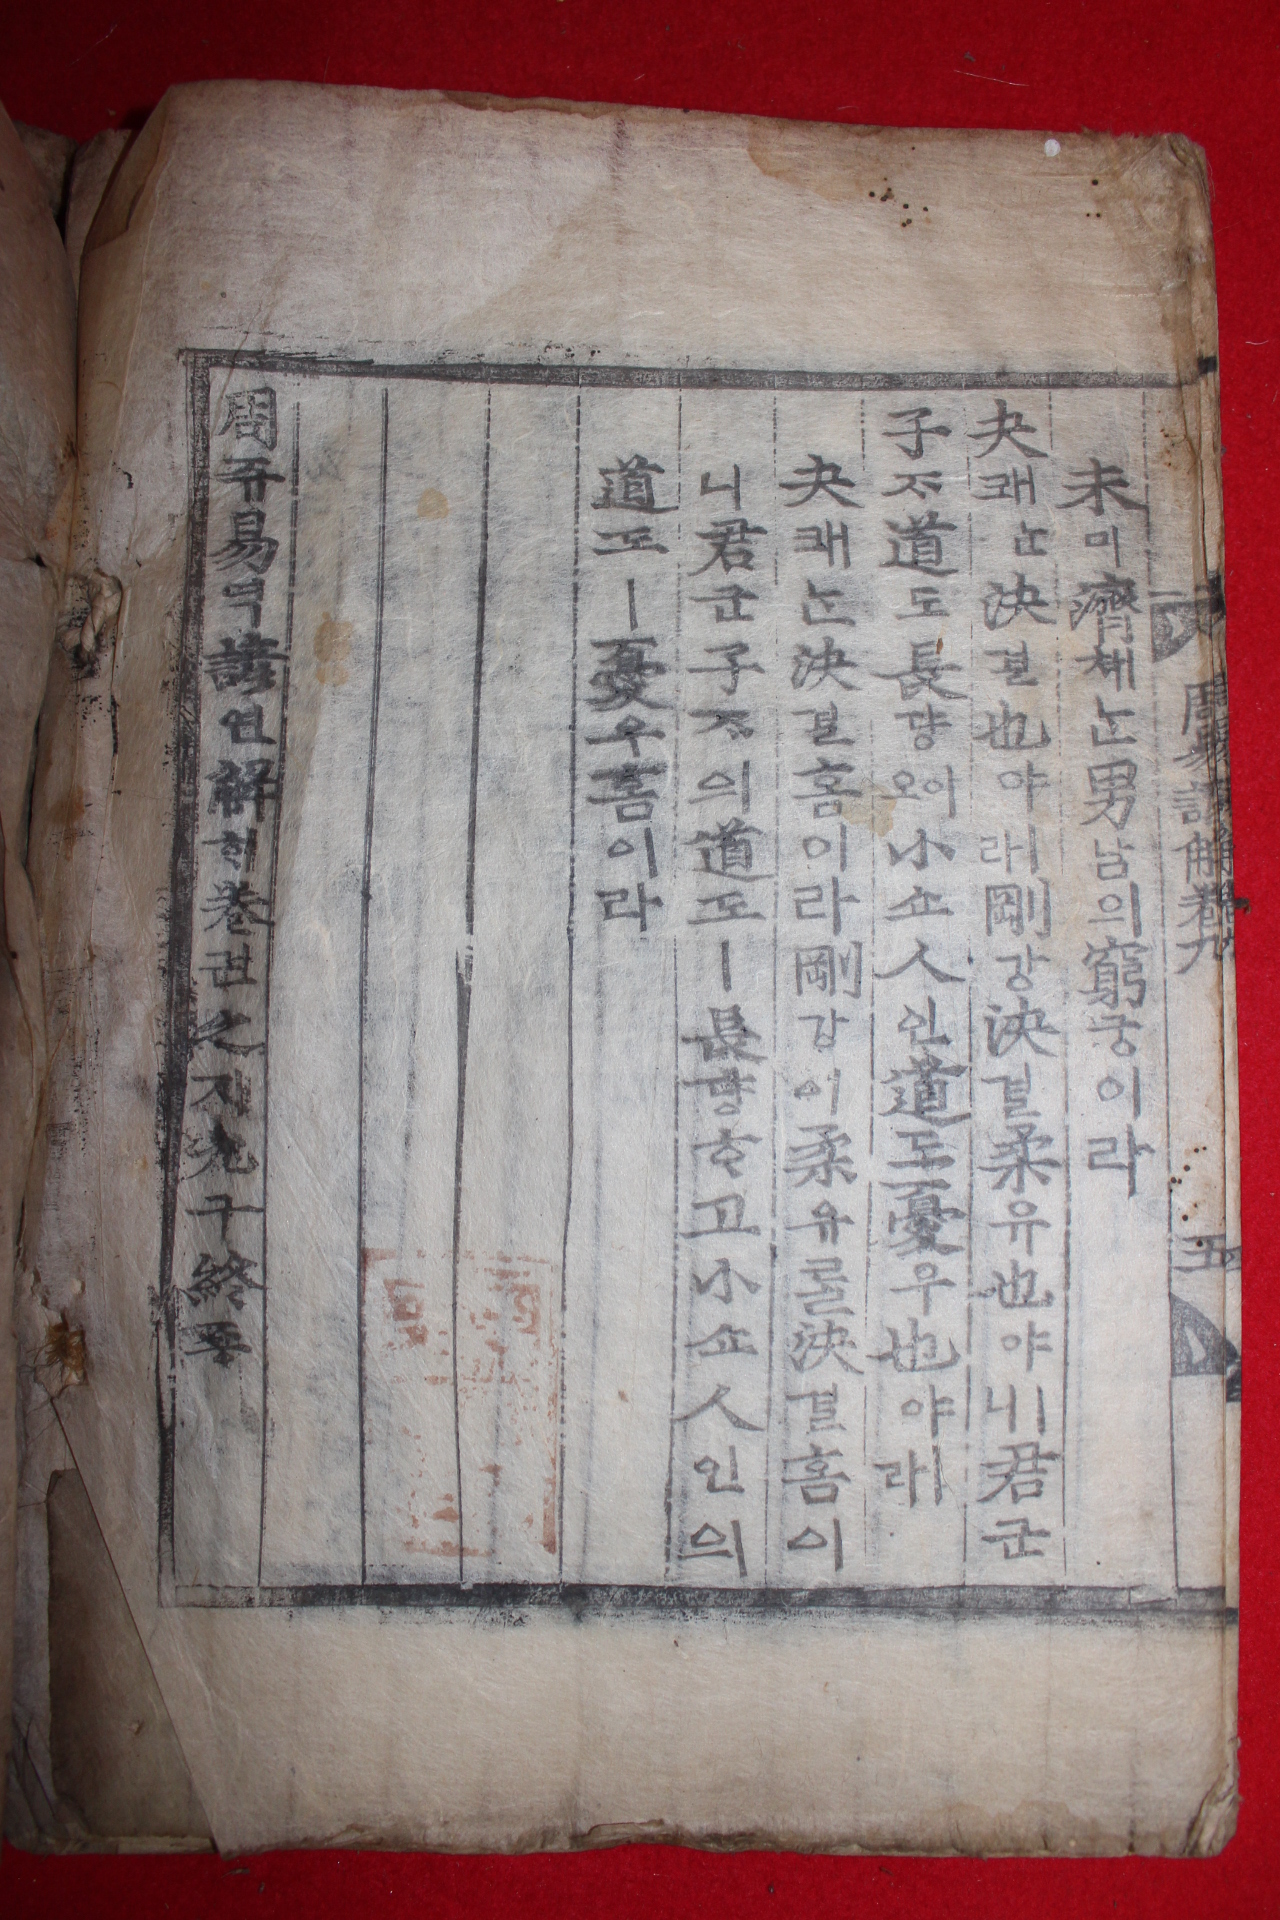 周易諺解卷九
五
未미濟졔ᄂᆞᆫ男남의窮궁이라
夬쾌ᄂᆞᆫ決결也야ㅣ라剛강決결柔유也야ㅣ니君군
子ᄌᆞ道도長댱이오小쇼人인道도憂우也야ㅣ라
夬쾌ᄂᆞᆫ決결홈이라剛강이柔유ᄅᆞᆯ決결홈이
니君군子ᄌᆞ의道도ㅣ長댱ᄒᆞ고小쇼人인의
道도ㅣ憂우홈이라
周쥬易역諺언解ᄒᆡ卷권之지九구終죵